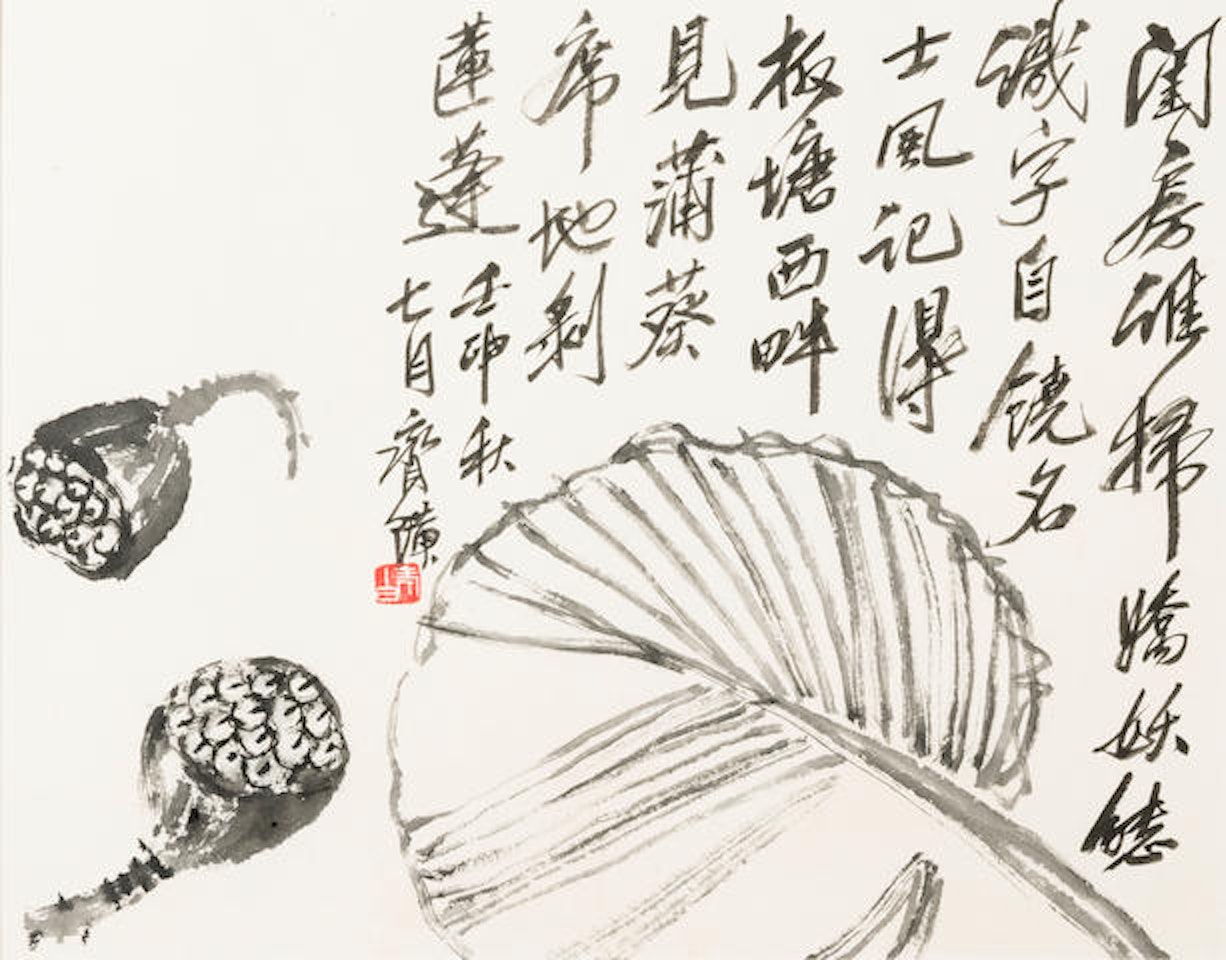 閨房誰掃嬌妖態
識字自饒名
士風記得
板塘西畔
見蒲葵
席地剝
蓮蓬
壬申秋
七月齊璜